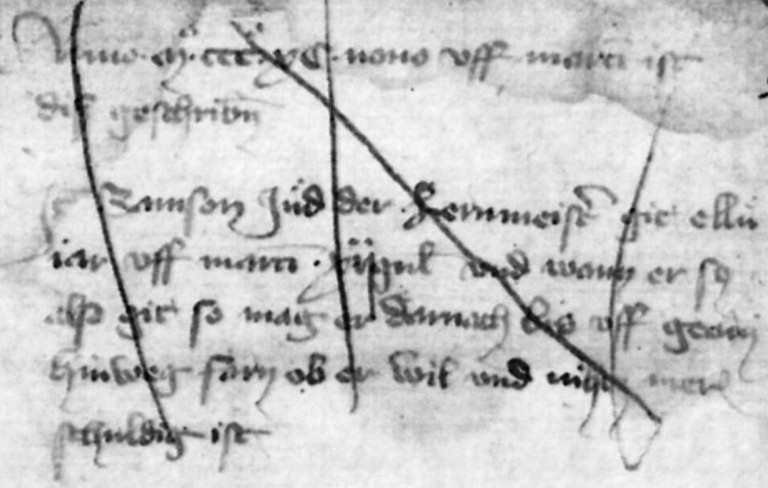 Anno mͦ cccͦ xc nono uff martī ist
diß geschribñ
Jt Ramson Jud der Lermeist̄ git ellú
iar uff martī xij gul und wann er sy
also git so mag er darnach bis uff georij
hinweg farn ob er wil und nüht mer
schuldig ist